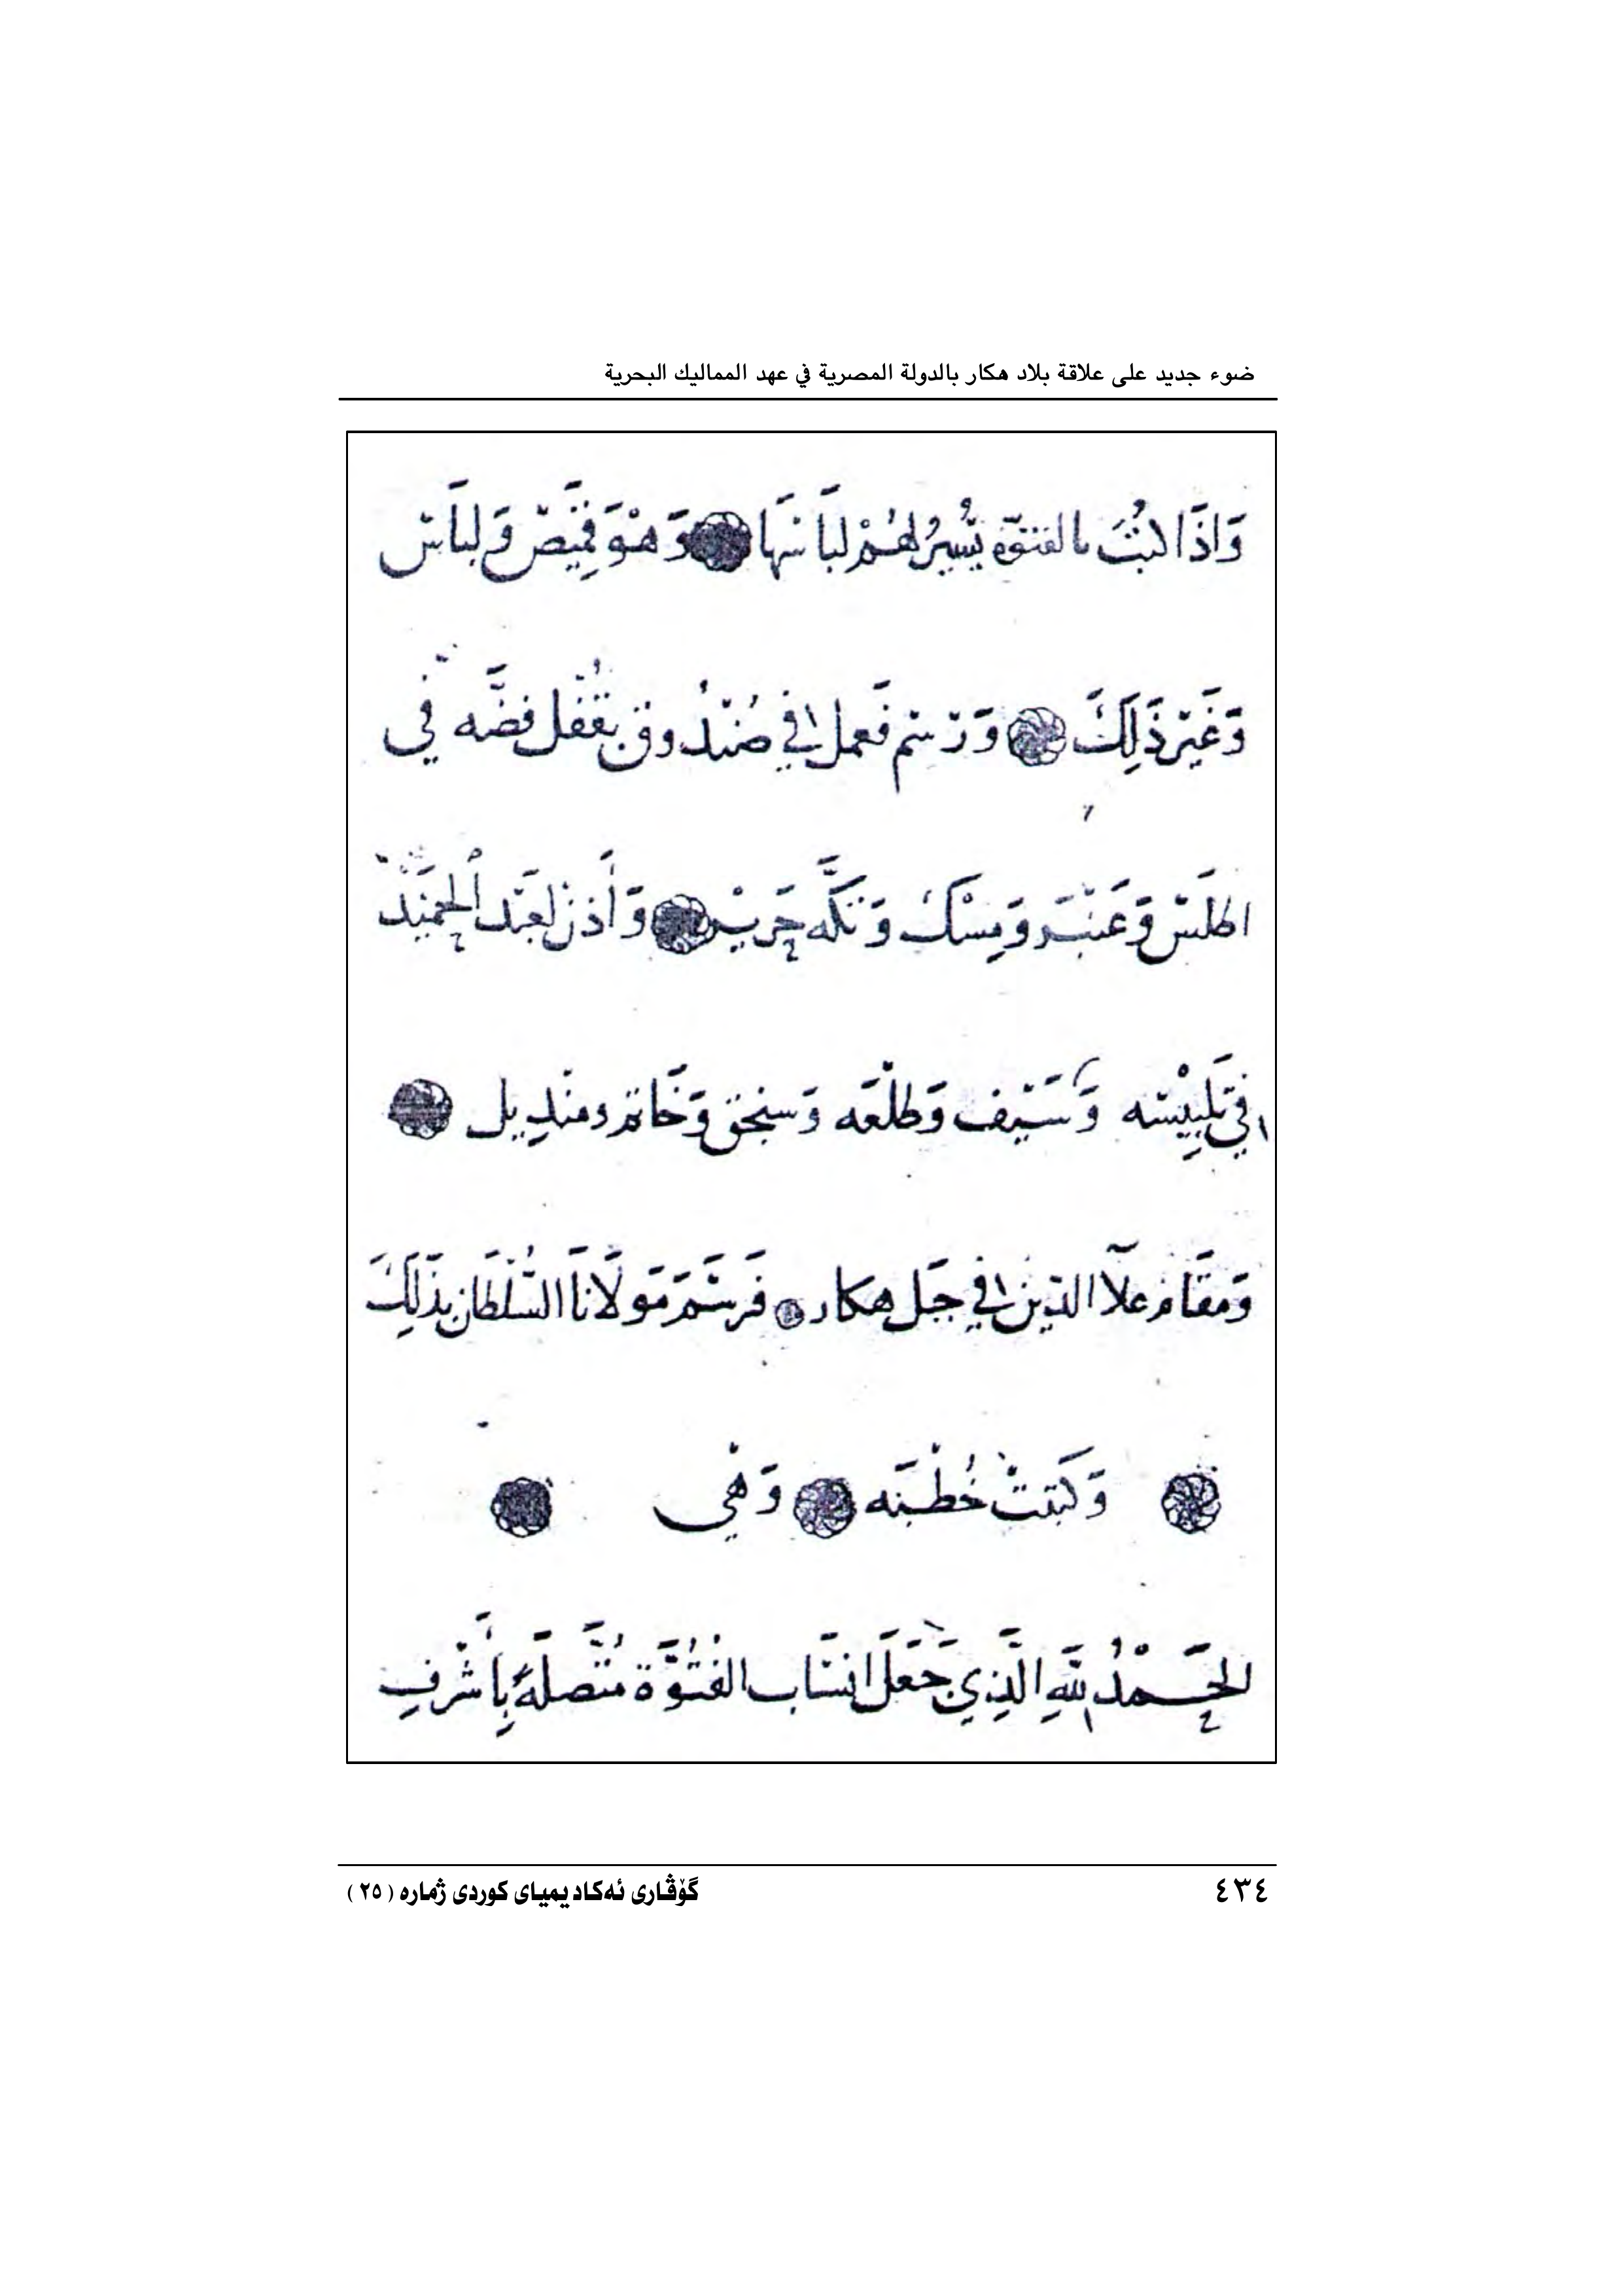 ضوء جديد على علاقة بلاد هكار بالدولة المصرية في عهد المماليك البحرية
وَاذَا لبثَ بالفتوّه يسيرُ لهُمْ لبَاسهَا وَهْوَ قمَيِصْ وَلبَاسْ
وَغَيْر ذَلِكَ وَرَسَم فَعمل في صُنْدُوق بقُفْل فضَّه في
اطلَسْ وَعَنْبَر وَمِسْكْ وَتكَّه حَريْر وَأَذنَ لعَبْد الحَميْد
في تَلبِيْسه وَسَيْف وَطلْعَه وَسنجق وَخَاتم ومنْدِيل
وَمقَام علآ الدّين في جَبَل هكار فَرَسَمَ مَولَانَا السُّلْطَان بذَلِكَ
وَكَتبتْ خُطْبَته وَهْي
الحَمْدُ للَّهِ الَّذِي جَعَلَ انسَاب الفُتُوَّة مُتَّصلَةً بِأَشْرَفِ
٤٣٤
گۆڤاری ئەکادیمیای کوردی ژمارە ( ٢٥ )